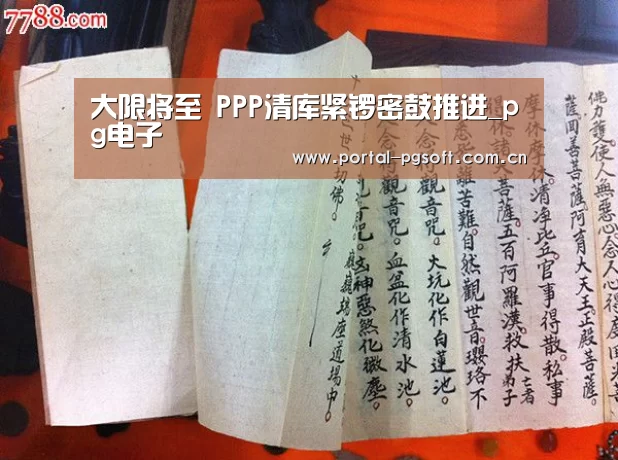 7788.com
大限将至 PPP清库紧锣密鼓推进_p
g电子
www.portal-pgsoft.com.cn
佛力護。使人無惡心。念人心得度
薩。聞善菩薩。阿育大天王。正殿菩薩。
摩休摩休。清净比丘。官事得散。私事
得休。諸大菩薩。五百阿羅漢。救扶弟子亡者
離苦難。自然觀世音。瓔珞不
人念將觀音咒。火坑化作白蓮池。
人念將觀音咒。血盆化作清水池。
咒。凶神惡煞化微塵。
世一切佛。巍巍端座道場中。